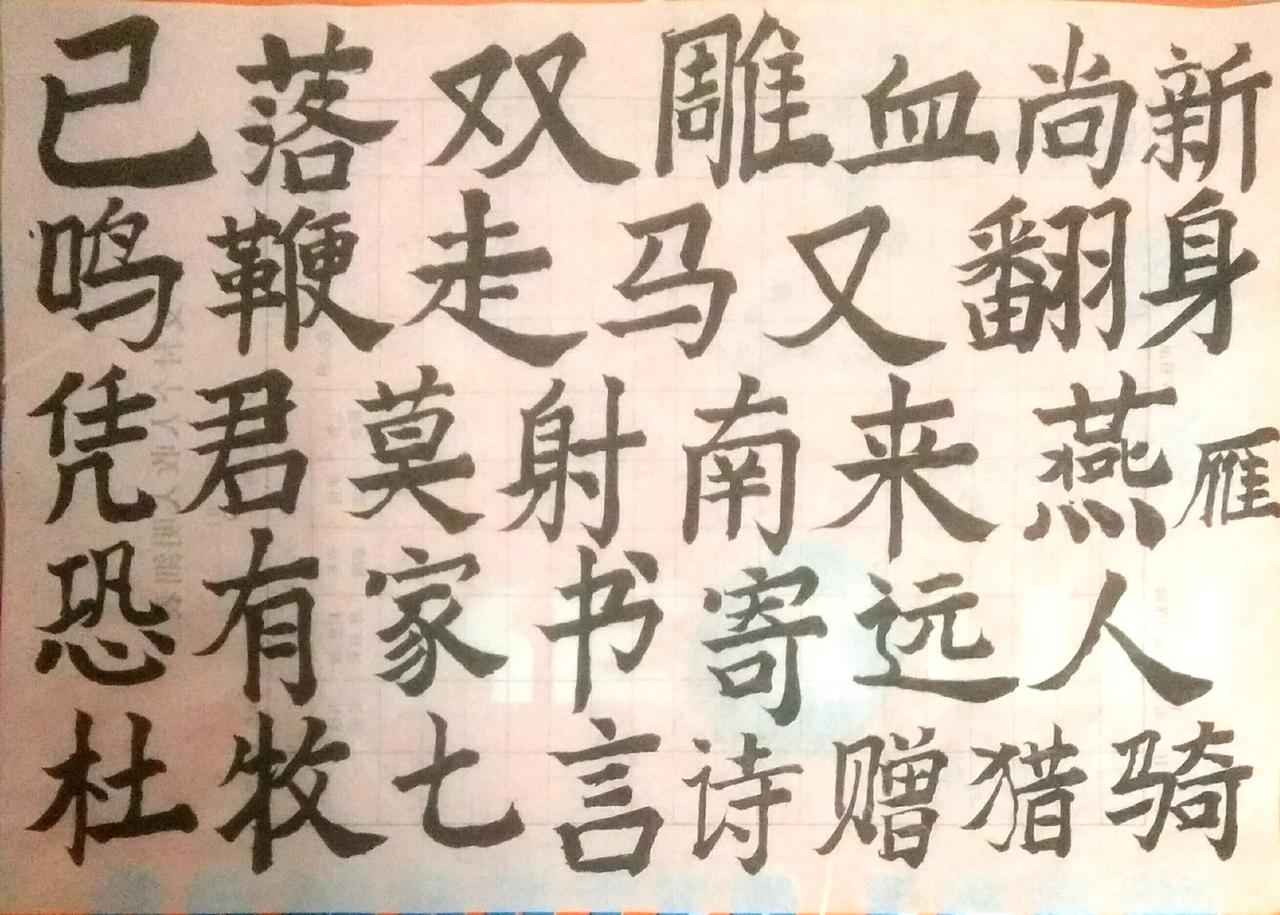 已落双雕血尚新
鸣鞭走马又翻身
凭君莫射南来燕雁
恐有家书寄远人
杜牧七言诗赠猎骑